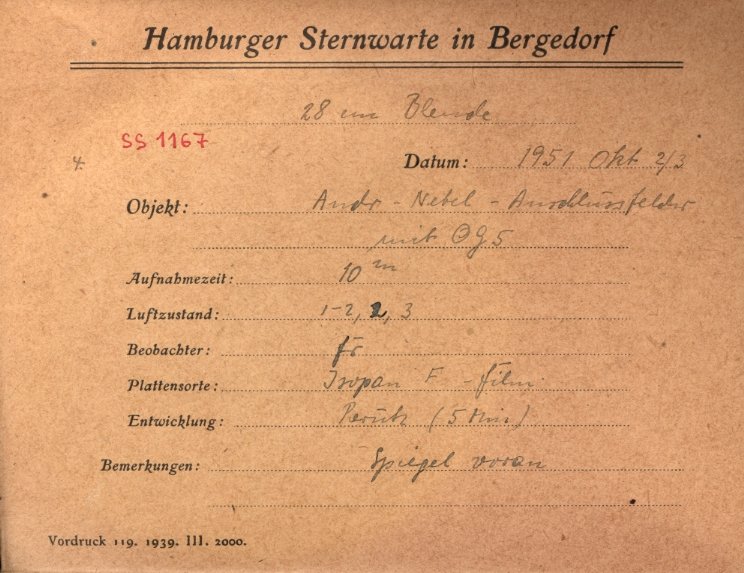 Hamburger Sternwarte in Bergedorf
28 cm Blende
SS 1167
4.
Datum: 1951 Okt 2/3
Objekt: Andr-Nebel-Anschlussfelder
mit OG5
Aufnahmezeit: 10 m
Luftzustand: 1-2, 2, 3
Beobachter: fr
Plattensorte: Isopan F - film
Entwicklung: Perutz (5 Min)
Bemerkungen: Spiegel voran
Vordruck 119. 1939. III. 2000.